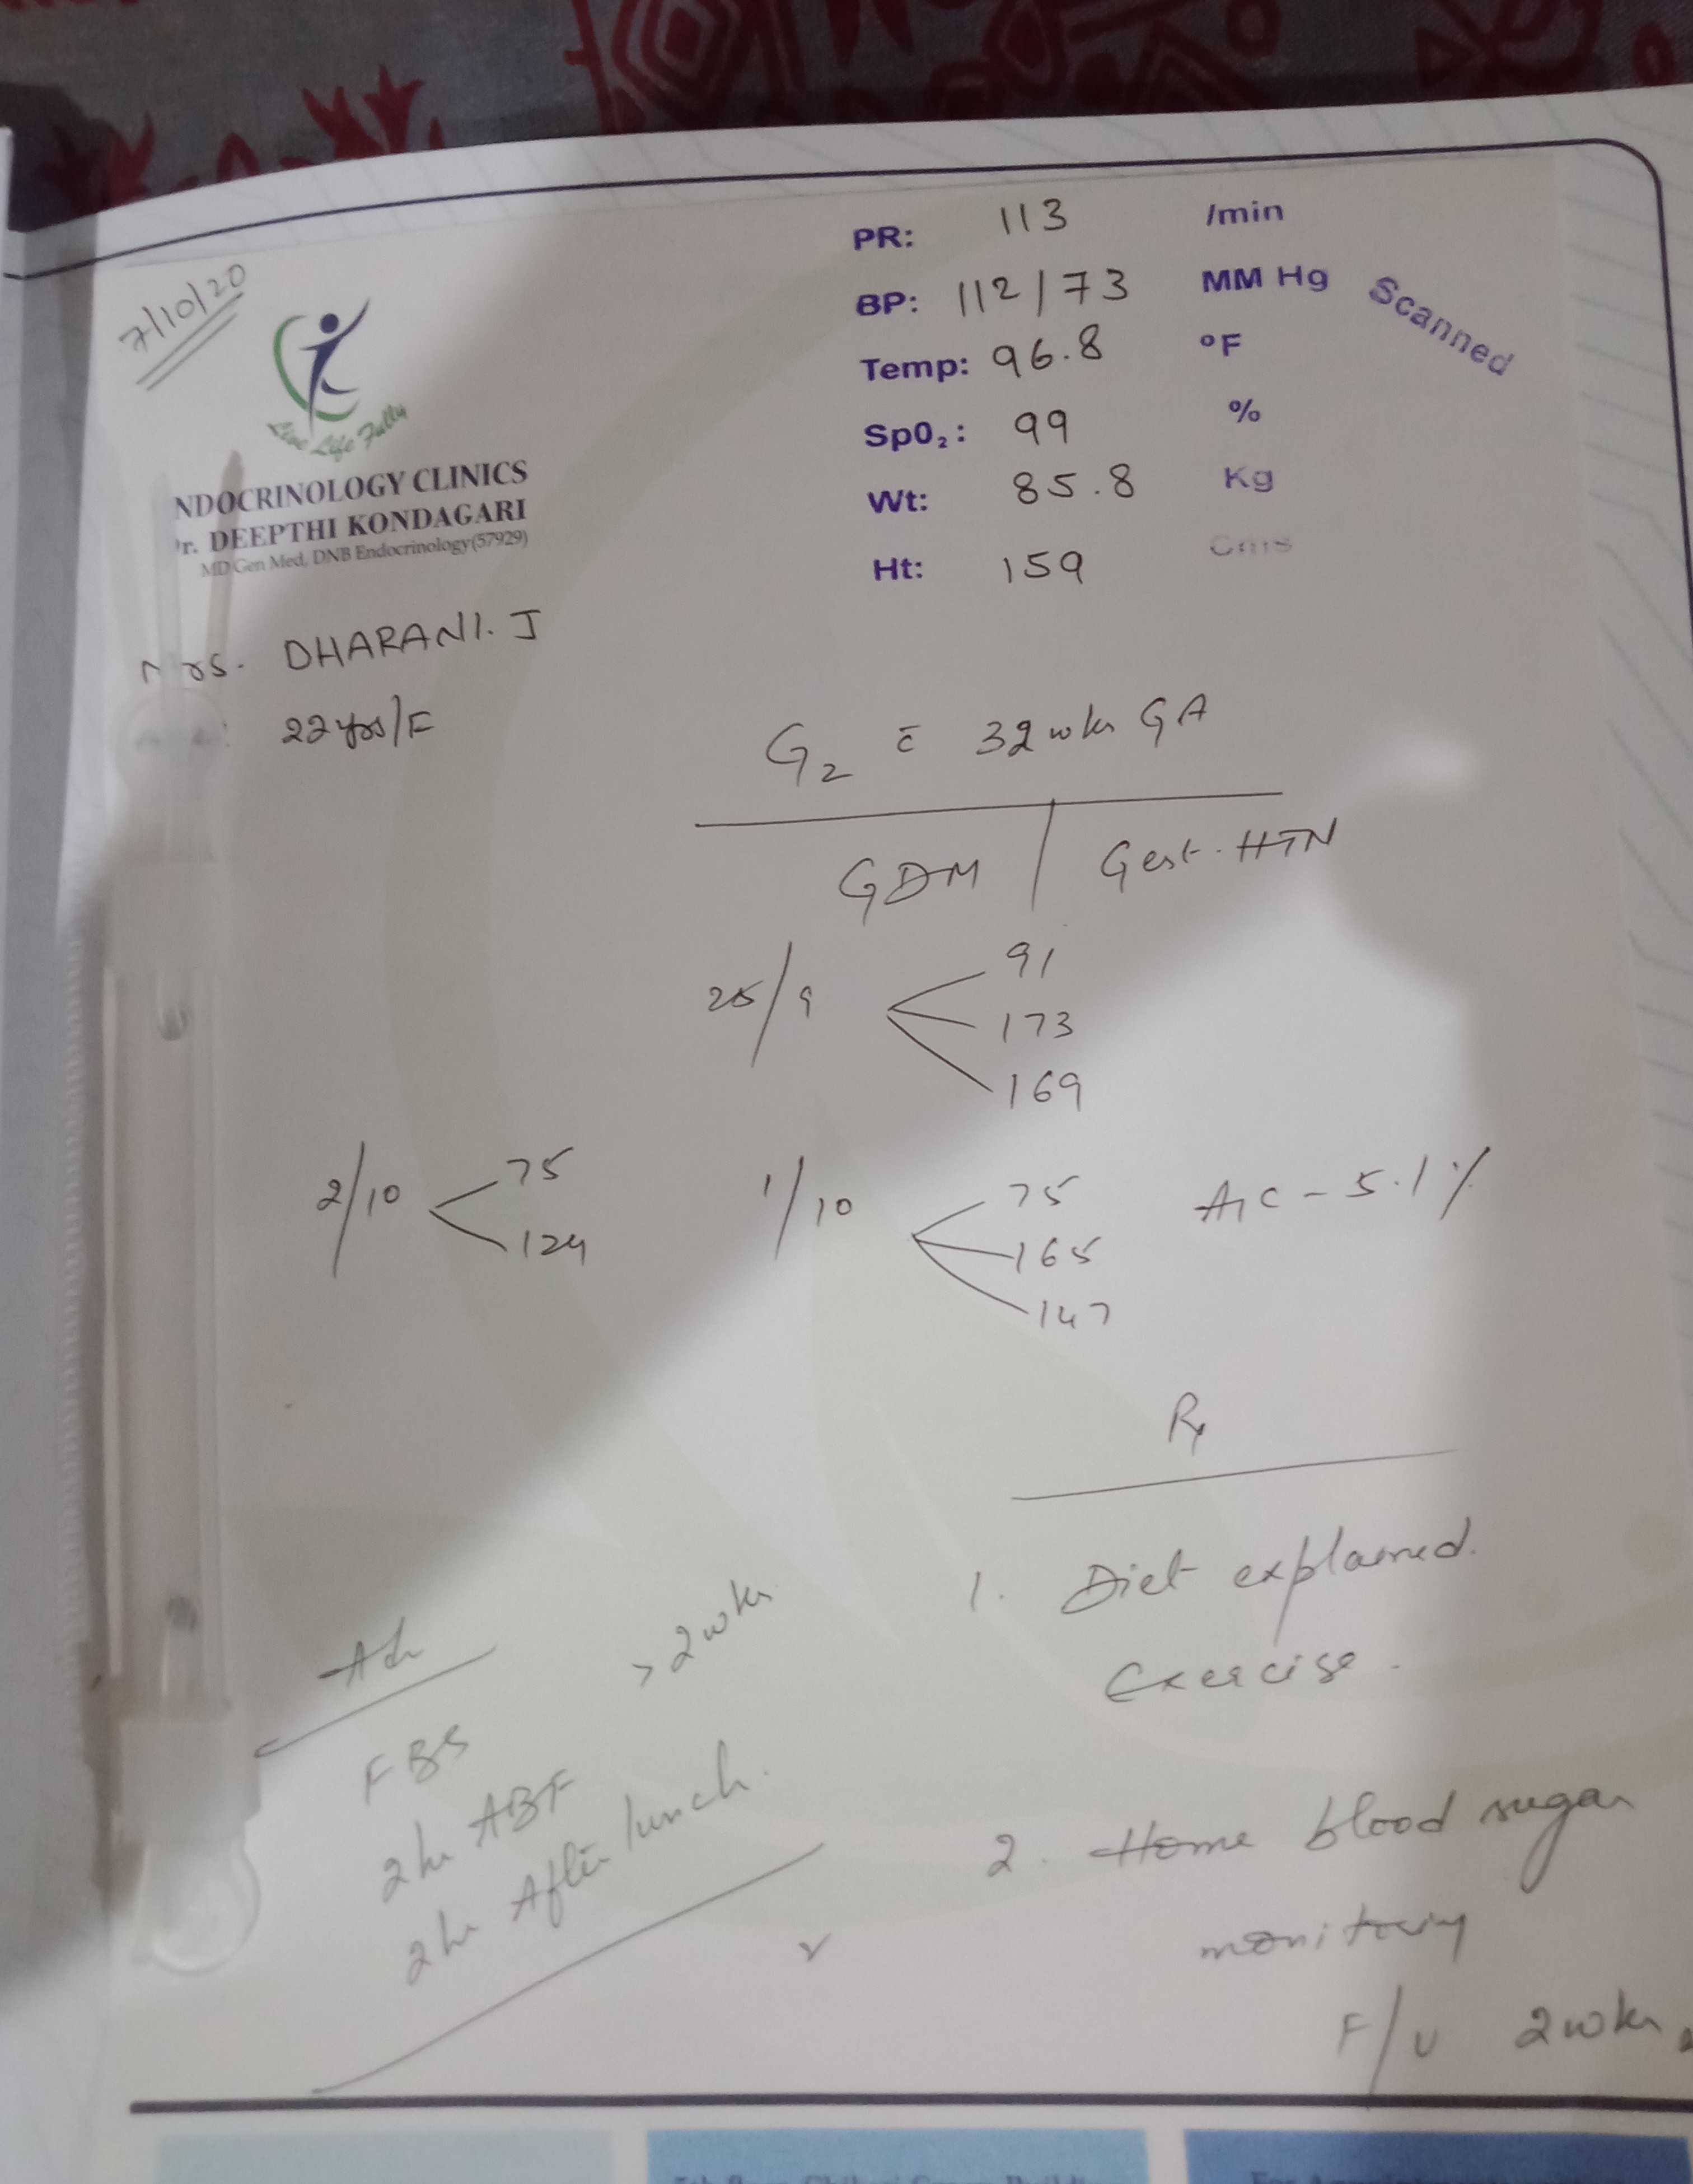 7/10/20
Live Life Fully
NDOCRINOLOGY CLINICS
r. DEEPTHI KONDAGARI
MD Gen Med, DNB Endocrinology(57929)
PR: 113 /min
BP: 112/73 MM Hg
Temp: 96.8 °F
SpO₂: 99 %
Wt: 85.8 Kg
Ht: 159 Cms
Scanned
Mrs. DHARANI. J
22 yrs/F
G₂ c̄ 32 wks GA
GDM / Gest. HTN
25/9
91
173
169
2/10
75
124
1/10
75
165
147
A1c - 5.1%
Rx
1. Diet explained.
Exercise.
2. Home blood sugar
monitoring
F/U 2 wks
Adv
> 2 wks
FBS
2 hr ABF
2 hr After lunch.